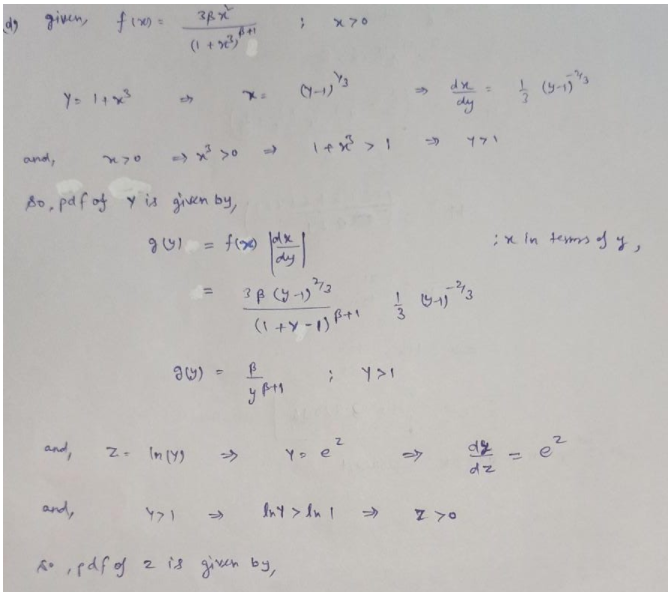 (d) given, f(x) = 3βx² / (1+x³)^(β+1) ; x>0
Y = 1+x³ ⇒ x = (y-1)^(1/3) ⇒ dx/dy = 1/3 (y-1)^(-2/3)
and, x>0 ⇒ x³>0 ⇒ 1+x³ > 1 ⇒ Y>1
So, pdf of Y is given by,
g(y) = f(x) |dx/dy| ; x in terms of y,
= 3β (y-1)^(2/3) / (1+y-1)^(β+1) 1/3 (y-1)^(-2/3)
g(y) = β / y^(β+1) ; Y>1
and, Z = ln(Y) ⇒ Y = e^z ⇒ dy/dz = e^z
and, Y>1 ⇒ lnY > ln 1 ⇒ Z>0
So, pdf of z is given by,